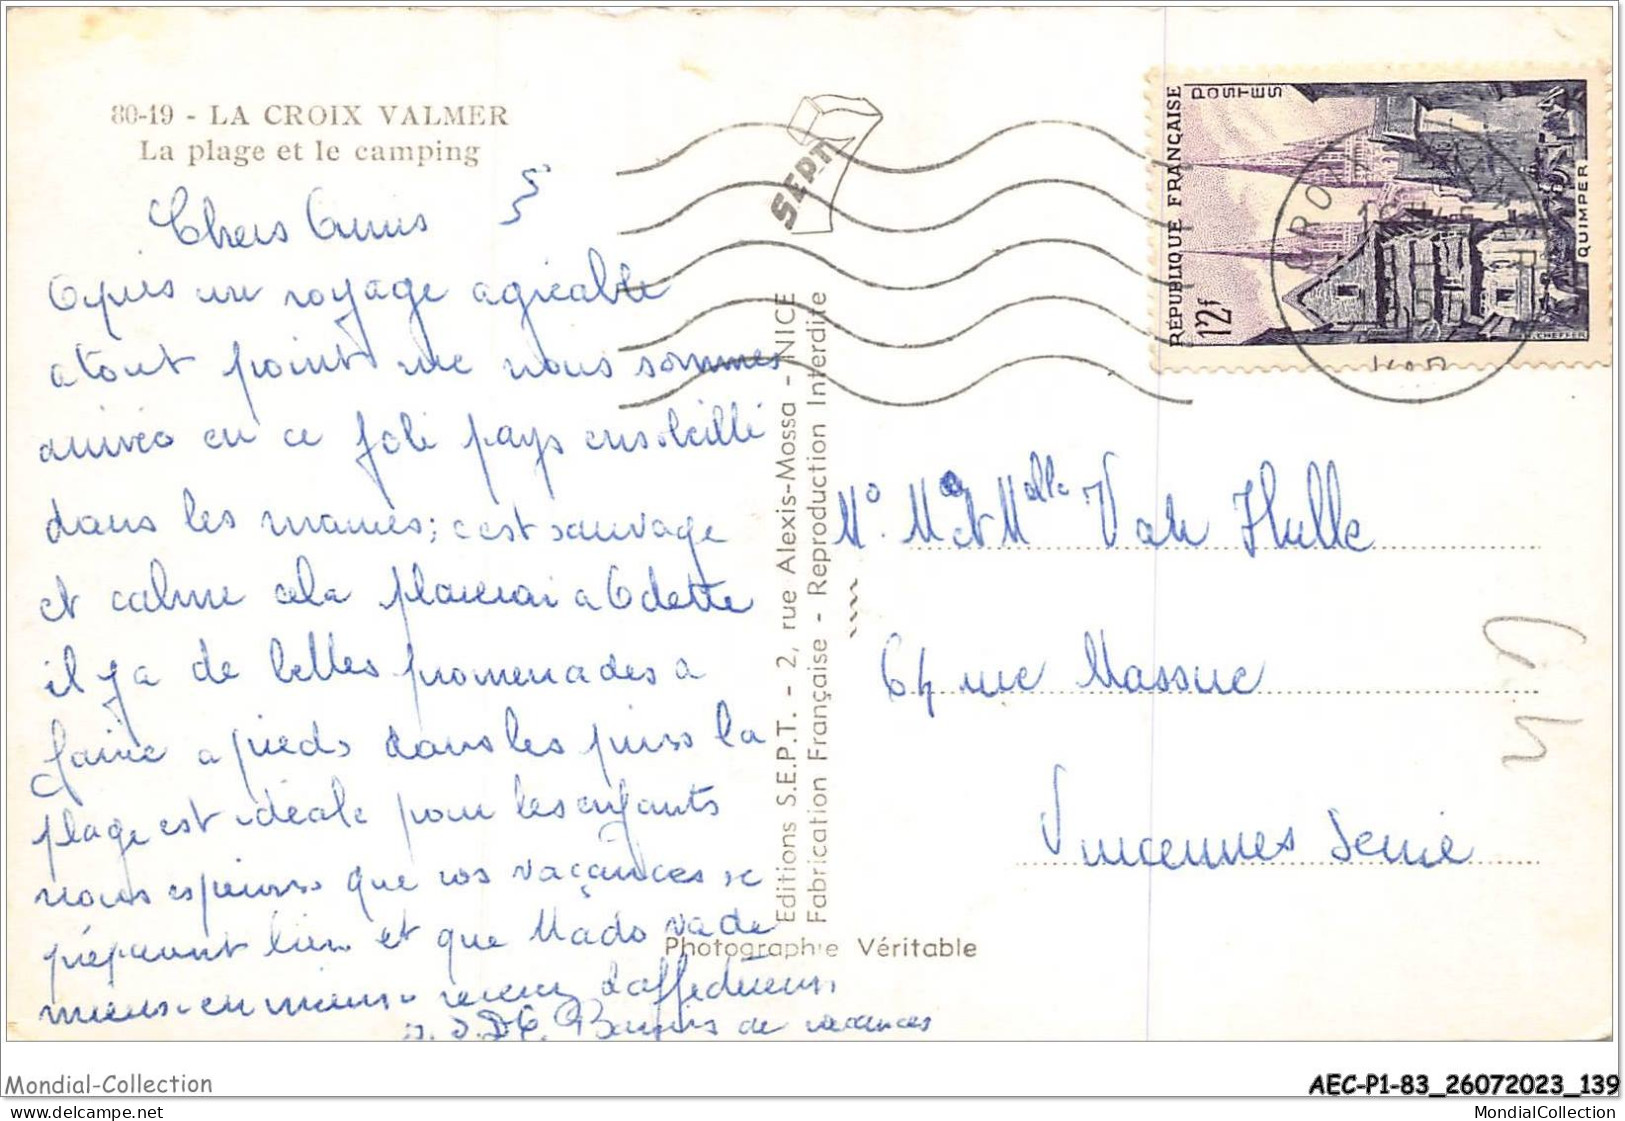 80-19 - LA CROIX VALMER
La plage et le camping
Chers Amis
Après un voyage agréable
a tout point vue nous sommes
arrivés en ce joli pays ensoleillé
dans les ; c'est sauvage
et calme cela plairai a Odette
il y a de belles promenades a
faire a pieds dans les pins la
plage est idéale pour les enfants
nous espérons que vos vacances se
préparent bien et que Mado va de
mieux en mieux recevez d'affectueux
Baisers de vacances
SEPT
Editions S.E.P.T. - 2, rue Alexis-Mossa - NICE
Fabrication Française - Reproduction Interdite
Photographie Véritable
RÉPUBLIQUE FRANÇAISE
POSTES
12f
QUIMPER
Mr. Me et Melle Van Hulle
64 rue Massue
Vincennes Seine
Mondial-Collection
delcampe.net
AEC-P1-83_26072023_139
MondialCollection